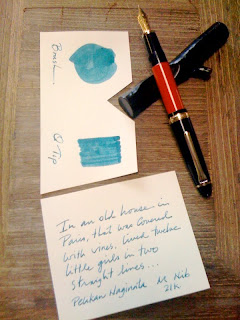 Brush
Q Tip
In an old house in
Paris, that was covered
with vines, lived twelve
little girls in two
straight lines...
Pelikan Naginata M Nib
21k